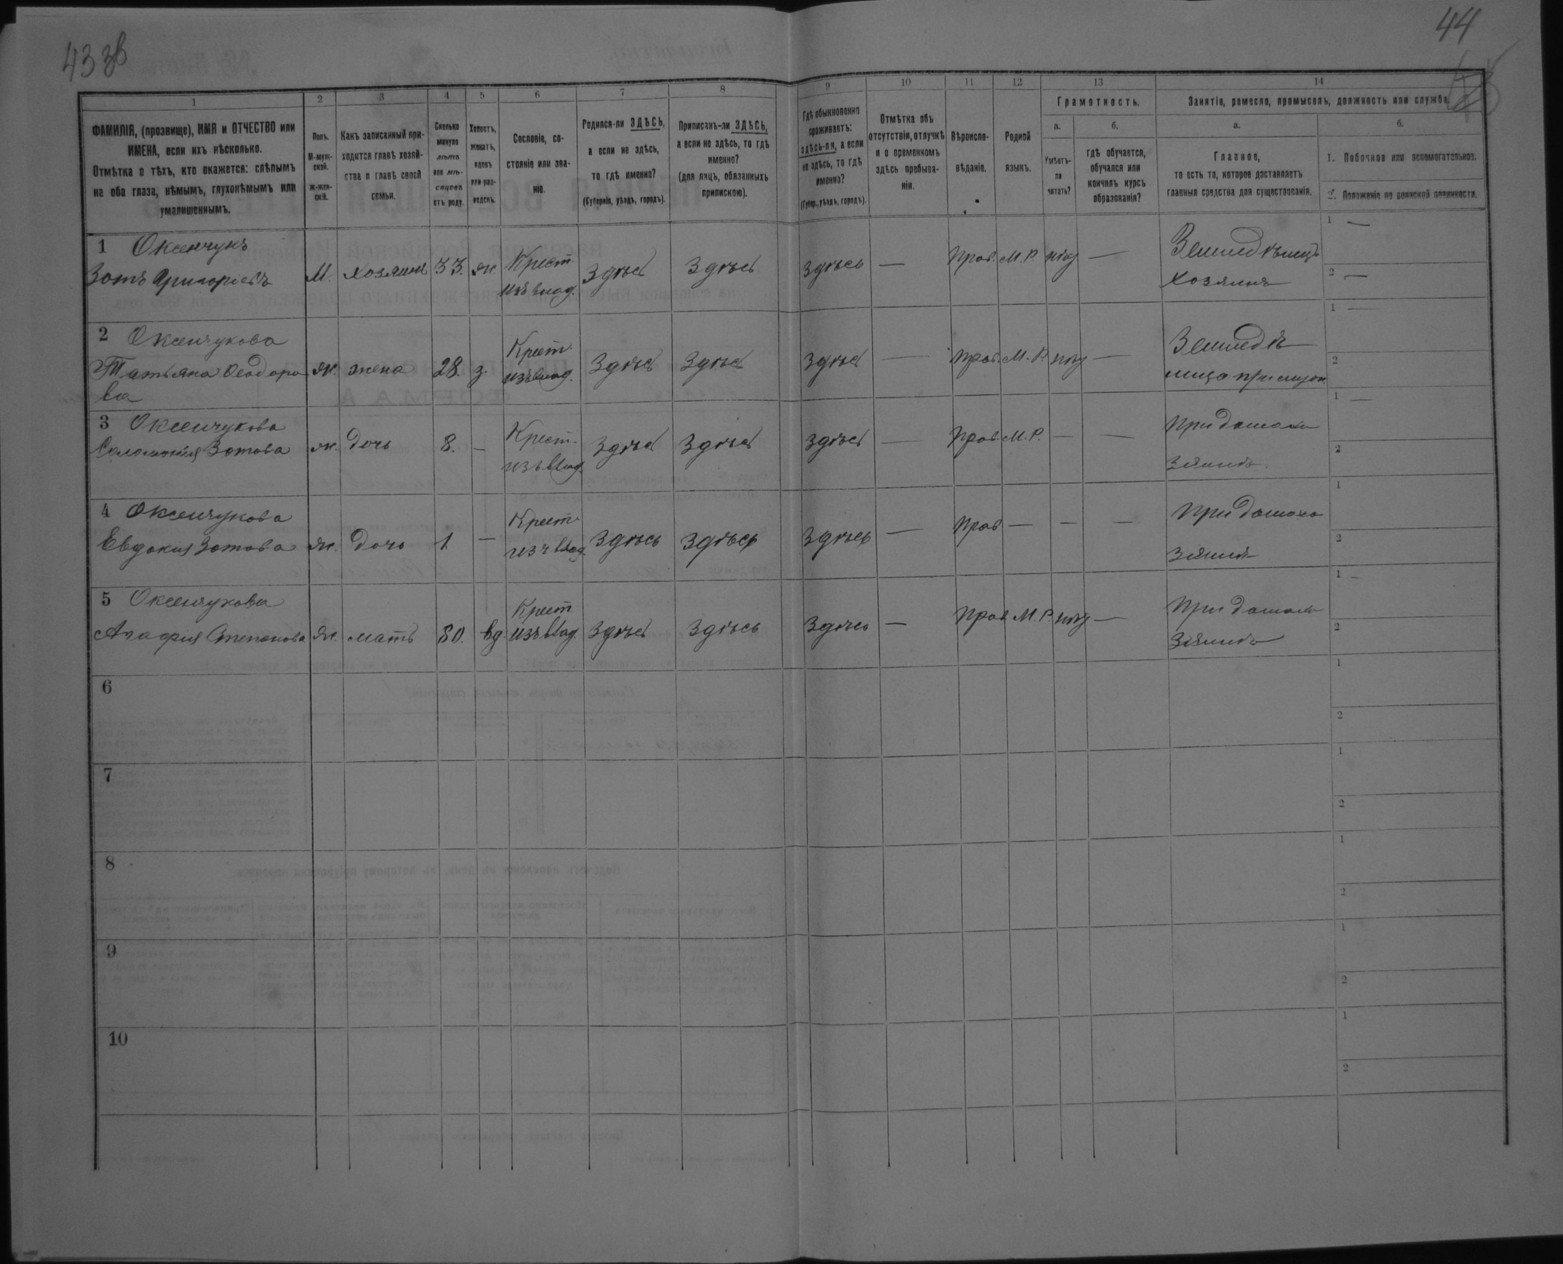 43 зв
44
1 2 3 4 5 6 7 8 9 10 11 12 13 14
ФАМИЛІЯ, (прозвище), ИМЯ и ОТЧЕСТВО или ИМЕНА, если ихъ нѣсколько.
Отмѣтка о тѣхъ, кто окажется: слѣпымъ на оба глаза, нѣмымъ, глухонѣмымъ или умалишеннымъ.
Полъ.
М-муж-
ской.
Ж-жен-
скій.
Какъ записанный при-
ходится главѣ хозяй-
ства и главѣ своей
семьи.
Сколько
минуло
лѣтъ
или мѣ-
сяцевъ
отъ роду.
Холостъ,
женатъ,
вдовъ
или раз-
веденъ.
Сословіе, со-
стояніе или зва-
ніе.
Родился-ли ЗДѢСЬ,
а если не здѣсь,
то гдѣ именно?
(Губернія, уѣздъ, городъ).
Приписанъ-ли ЗДѢСЬ,
а если не здѣсь, то гдѣ
именно?
(для лицъ, обязанныхъ
припискою).
Гдѣ обыкновенно
проживаетъ:
здѣсь-ли, а если
не здѣсь, то гдѣ
именно?
(Губер., уѣздъ, городъ).
Отмѣтка объ
отсутствіи, отлучкѣ
и о временномъ
здѣсь пребыва-
ніи.
Вѣроиспо-
вѣданіе.
Родной
языкъ.
Грамотность.
а.
Умѣетъ-
ли
читать?
б.
гдѣ обучается,
обучался или
кончилъ курсъ
образованія?
Занятія, ремесло, промыселъ, должность или служба.
а.
Главное,
то есть то, которое доставляетъ
главныя средства для существованія.
б.
1. Побочное или вспомогательное.
2. Положеніе по воинской повинности.
1 Оксенчукъ
Зотъ Григоріевъ М. хозяинъ 33. ж Крест. изъ влад. Здѣсь Здѣсь здѣсь — Прав М.Р. нѣт — Земледѣлецъ хозяинъ 1 — 2 —
2 Оксенчукова
Татьяна Феодоро
ва ж. жена 28. з. Крест. изъ влад. Здѣсь Здѣсь здѣсь — Прав. М.Р. нѣт — 1 — 2
3 Оксенчукова
Соломонія Зотова ж. дочь 8. — Крест. изъ влад. Здѣсь Здѣсь здѣсь — Прав М.Р. — — При 1 — 2
4 Оксенчукова
Евдокия Зотова ж. дочь 1. — Крест. изъ влад. Здѣсь Здѣсь здѣсь — Прав — — — При 1 2
5 Оксенчукова
Агафия Степанова ж. мать 80. вд. Крест. изъ влад. Здѣсь Здѣсь Здѣсь — Прав М.Р. нѣт — При 1 — 2
6 1 2
7 1 2
8 1 2
9 1 2
10 1 2